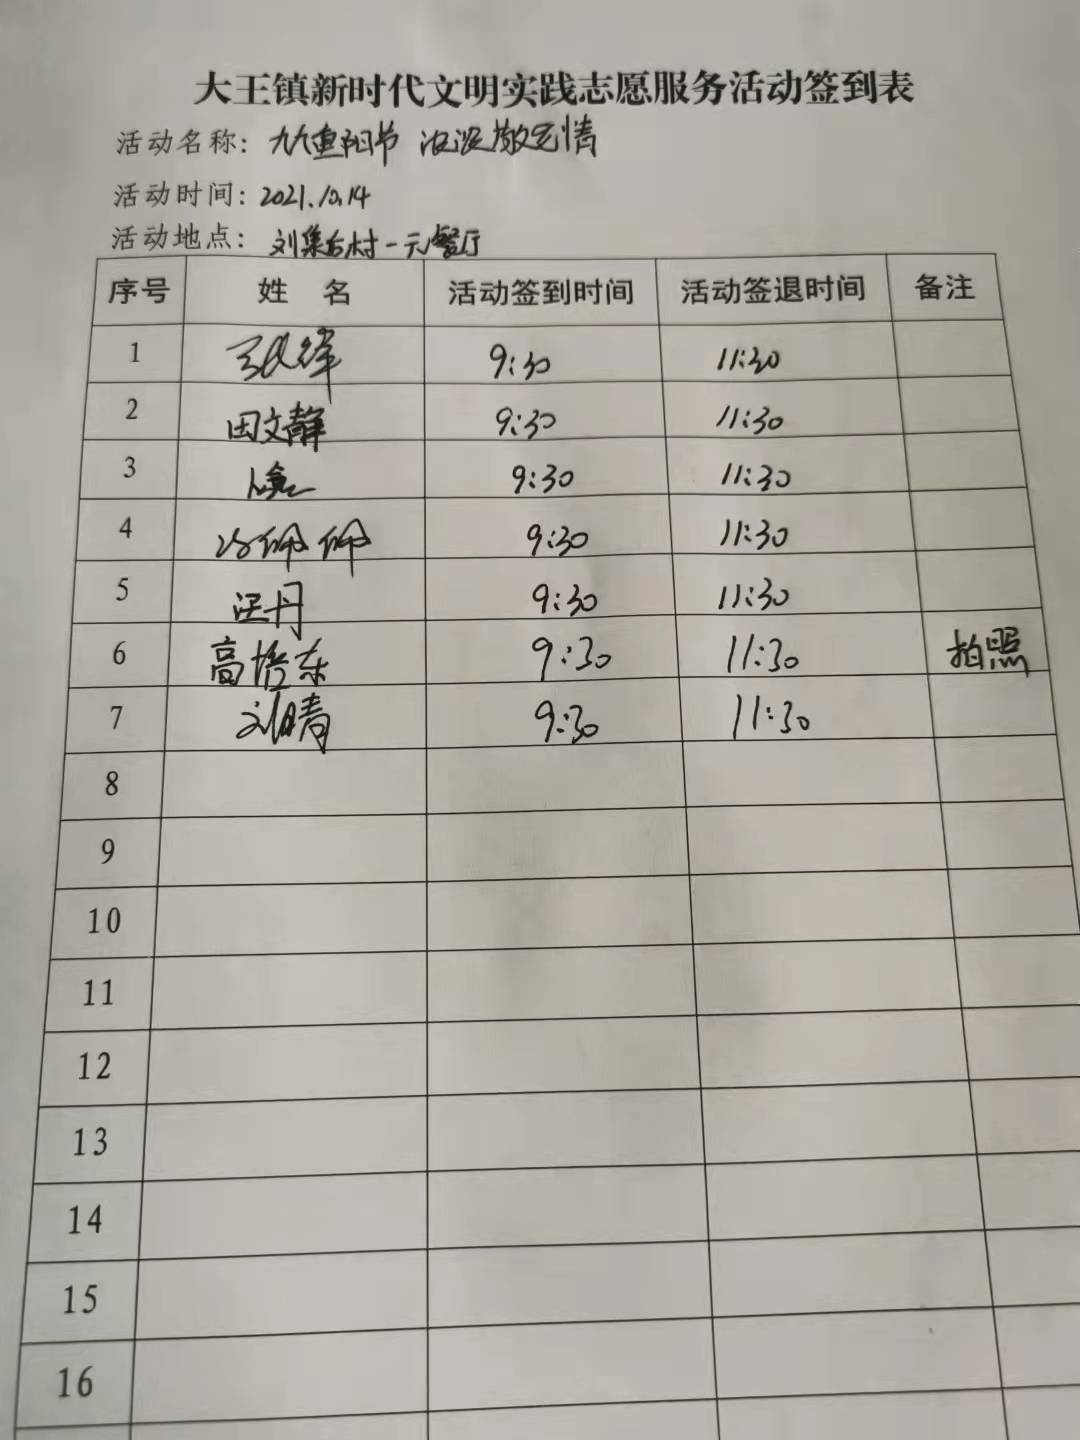 大王镇新时代文明实践志愿服务活动签到表
活动名称：九九重阳节 浓浓敬老情
活动时间：2021.10.14
活动地点：刘集后村一元餐厅
序号 姓名 活动签到时间 活动签退时间 备注
1 9:30 11:30
2 田文静 9:30 11:30
3 9:30 11:30
4 冷佩佩 9:30 11:30
5 汪丹 9:30 11:30
6 高培东 9:30 11:30 拍照
7 刘晴 9:30 11:30
8
9
10
11
12
13
14
15
16